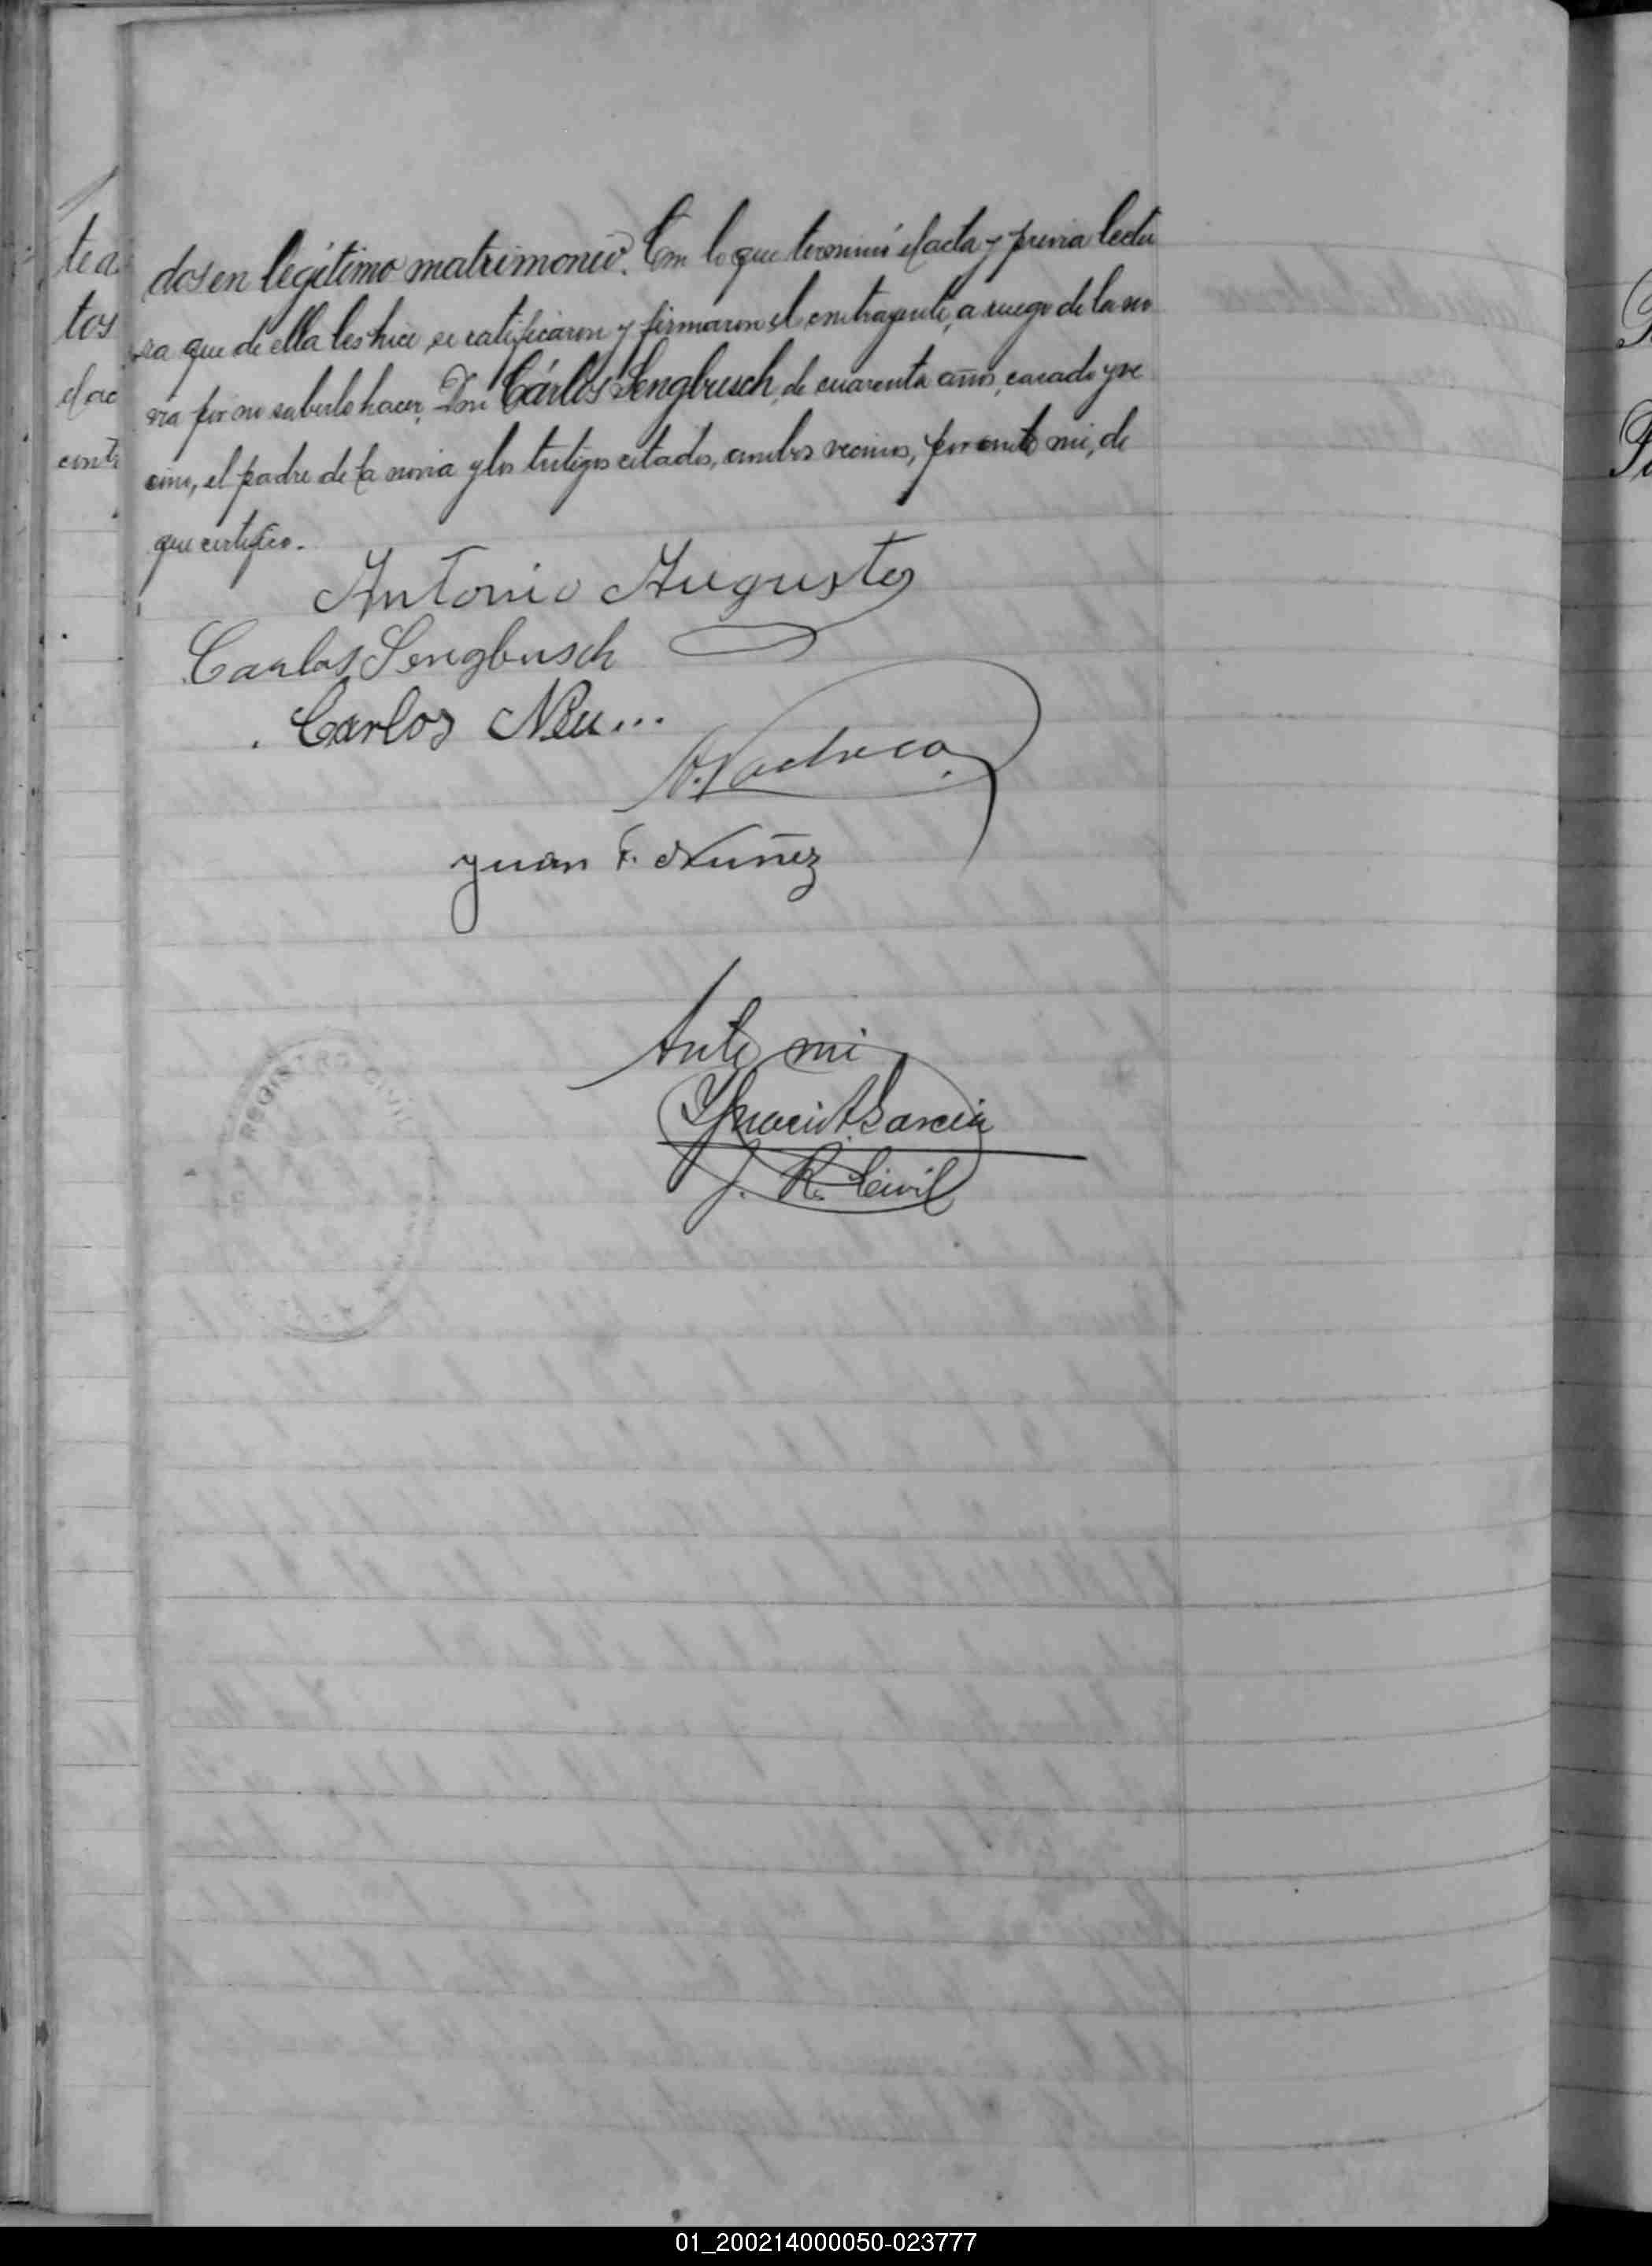 dos en legitimo matrimonio. Con lo que terminó el acta y previa lectu
ra que de ella les hice, se ratificaron y firmaron el contrayente, a ruego de la no
via por no saberlo hacer, Don Cárlos Sengbusch, de cuarenta años, casado y ve
cino, el padre de la novia y los testigos citados, ambos vecinos, por ante mi, de
que certifico.
Antonio Augusto
Carlos Sengbusch
Carlos Neu...
A. Pacheco
Juan F. Nuñez
Ante mi
Ygnacio A. Garcia
J. R. Civil
REGISTRO CIVIL
te a
tos
el ac
cont
01_200214000050-023777